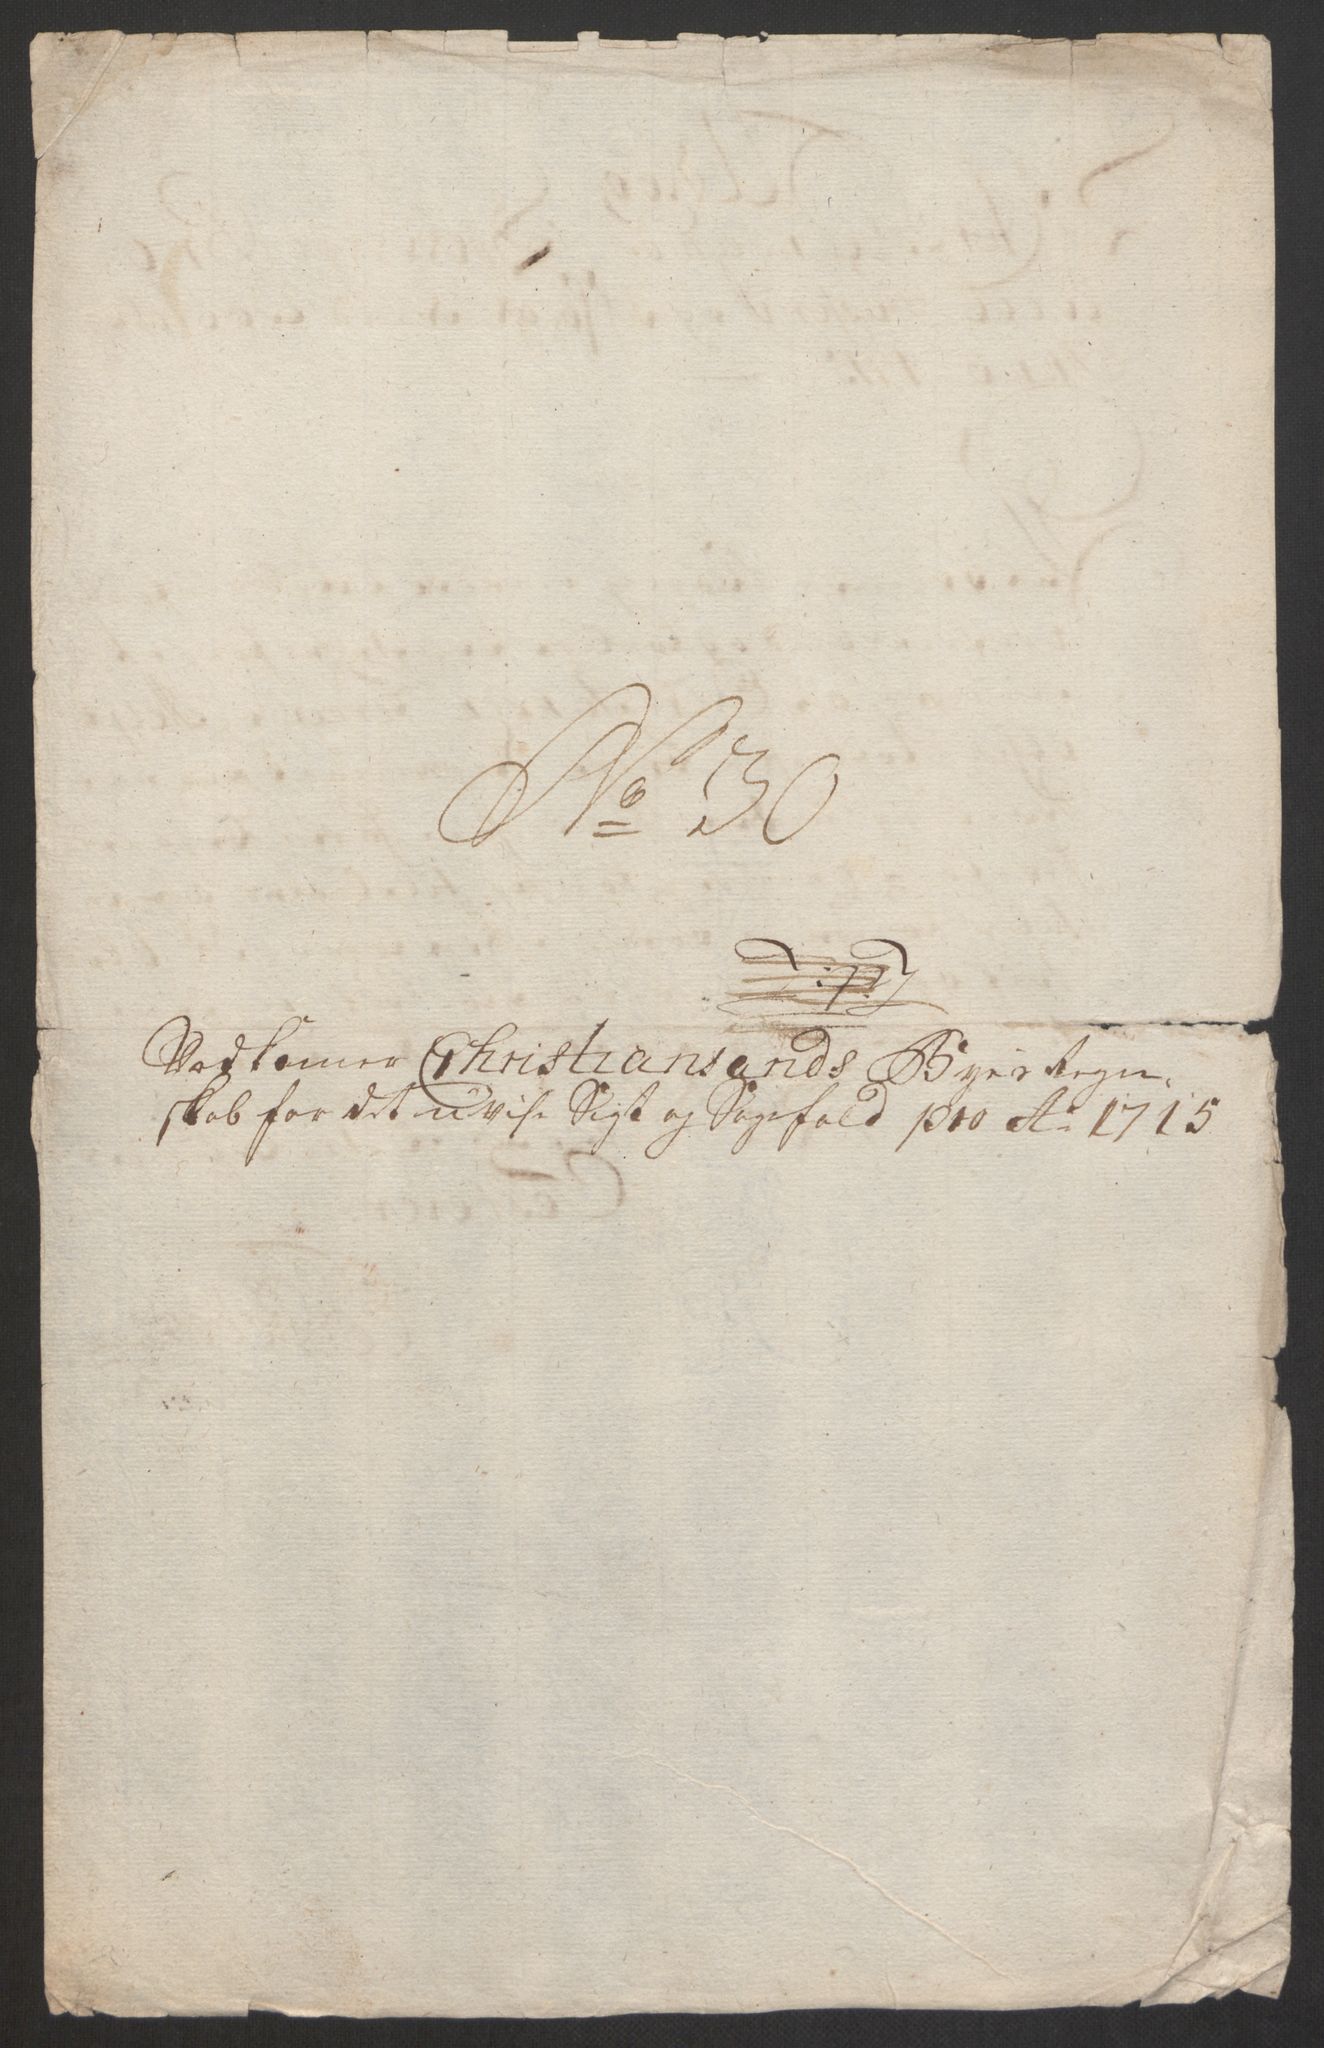 No 30
Vedkomer Christiansands Byes Regn,
skab for det uvise Sigt og Sagefald pro Ao 1715